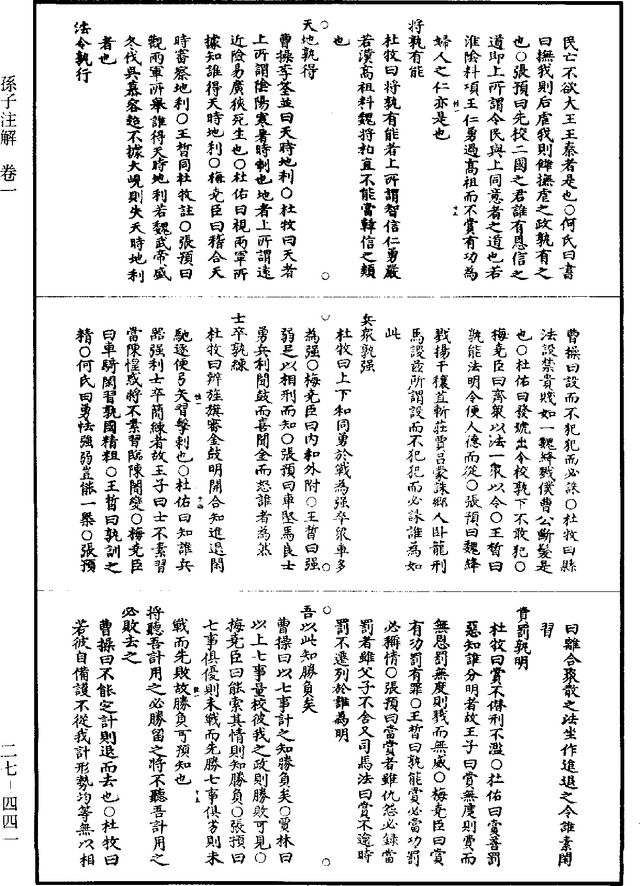 民亡不欲大王王秦者是也○何氏曰書
曰撫我則后虐我則讎撫虐之政孰有之
也○張預曰先校二國之君誰有恩信之
道即上所謂令民與上同意者之道也若
淮陰料項王仁勇過高祖而不賞有功為
婦人之仁亦是也
將孰有能
杜牧曰將孰有能者上所謂智信仁勇嚴
若漢高祖料魏將柏直不能當韓信之類
也
天地孰得
曹操李筌並曰天時地利○杜牧曰天者
上所謂陰陽寒暑時制也地者上所謂遠
近險易廣狹死生也○杜佑曰視兩軍所
據知誰得天時地利○梅堯臣曰稽合天
時審察地利○王晳同杜牧註○張預曰
觀兩軍所舉誰得天時地利若魏武帝盛
冬伐吳慕容超不據大峴則失天時地利
者也
法令孰行
曹操曰設而不犯犯而必誅○杜牧曰縣
法設禁貴賤如一魏絳戮僕曹公斷髮是
也○杜佑曰發號出令校孰下不敢犯○
梅堯臣曰齊衆以法一衆以令○王晳曰
孰能法明令便人聽而從○張預曰魏絳
戮揚干穰苴斬莊賈呂蒙誅鄉人臥龍刑
馬謖茲所謂設而不犯犯而必誅誰為如
此
兵衆孰强
杜牧曰上下和同勇於戰為强卒衆車多
為强○梅堯臣曰內和外附○王晳曰强
弱足以相刑而知○張預曰車堅馬良士
勇兵利聞鼓而喜聞金而怒誰者為然
士卒孰練
杜牧曰辨旌旗審金鼓明開合知進退閑
馳逐便弓矢習擊刺也○杜佑曰知誰兵
器强利士卒簡練者故王子曰士不素習
當陳惶惑將不素習臨陳闇變○梅堯臣
曰車騎閑習孰國精粗○王晳曰孰訓之
精○何氏曰勇怯强弱豈能一槩○張預
曰離合聚散之法坐作進退之令誰素閑
習
賞罰孰明
杜牧曰賞不僭刑不濫○杜佑曰賞善罰
惡知誰分明者故王子曰賞無度則費而
無恩罰無度則戮而無威○梅堯臣曰賞
有功罰有罪○王晳曰孰能賞必當功罰
必稱情○張預曰當賞者雖仇怨必錄當
罰者雖父子不舍又司馬法曰賞不逾時
罰不遷列於誰為明
吾以此知勝負矣
曹操曰以七事計之知勝負矣○賈林曰
以上七事量校彼我之政則勝敗可見○
梅堯臣曰能索其情則知勝負○張預曰
七事俱優則未戰而先勝七事俱劣則未
戰而先敗故勝負可預知也
將聽吾計用之必勝留之將不聽吾計用之
必敗去之
曹操曰不能定計則退而去也○杜牧曰
若彼自備護不從我計形勢均等無以相
孫子注解 卷一
二七－四四一